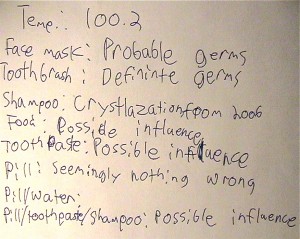 Temp.: 100.2
Face mask: Probable germs
Toothbrash: Defininte germs
Shampoo: Crystlazation from 2006
Food: Possible influence
Toothpaste: Possible influence
Pill: Seemingly nothing wrong
Pill/water:
Pill/toothpaste/shampoo: Possible influence